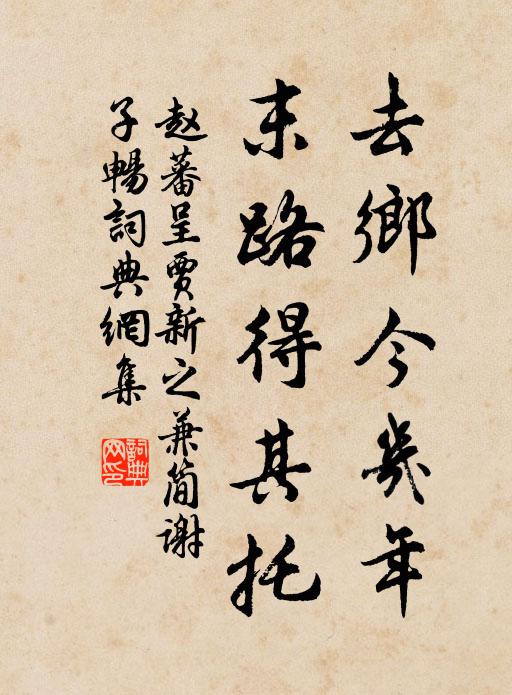 去鄉今幾年
末路得其托
赵蕃呈賈新之兼简谢
子暢詞典網集
詞典网印